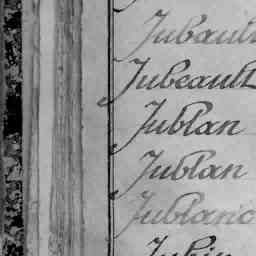 Jubault
Jubeault
Jublan
Jublan
Jublanc
Jubin